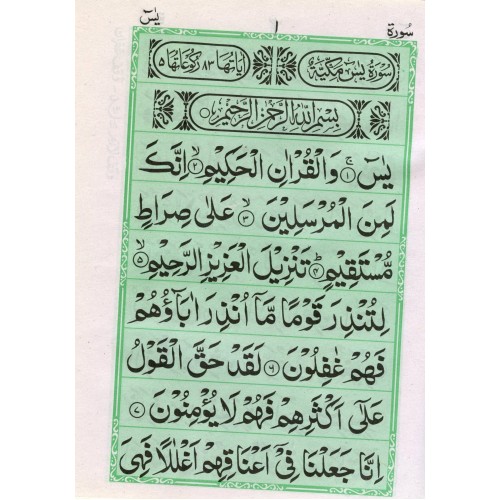 سُورَة ١ يٰسٓ
سُورَةُ يٰسٓ مَكِّيَّةٌ اٰيَاتُهَا ٨٣ رُكُوْعَاتُهَا ٥
بِسْمِ اللّٰهِ الرَّحْمٰنِ الرَّحِيْمِ
يٰسٓ ۚ ١ وَالْقُرْاٰنِ الْحَكِيْمِ ۙ ٢ اِنَّكَ
لَمِنَ الْمُرْسَلِيْنَ ۙ ٣ عَلٰى صِرَاطٍ
مُّسْتَقِيْمٍ ؕ ٤ تَنْزِيْلَ الْعَزِيْزِ الرَّحِيْمِ ۙ ٥
لِتُنْذِرَ قَوْمًا مَّاۤ اُنْذِرَ اٰبَآؤُهُمْ
فَهُمْ غٰفِلُوْنَ ٦ لَقَدْ حَقَّ الْقَوْلُ
عَلٰٓى اَكْثَرِهِمْ فَهُمْ لَا يُؤْمِنُوْنَ ٧
اِنَّا جَعَلْنَا فِىْٓ اَعْنَاقِهِمْ اَغْلٰلًا فَهِىَ